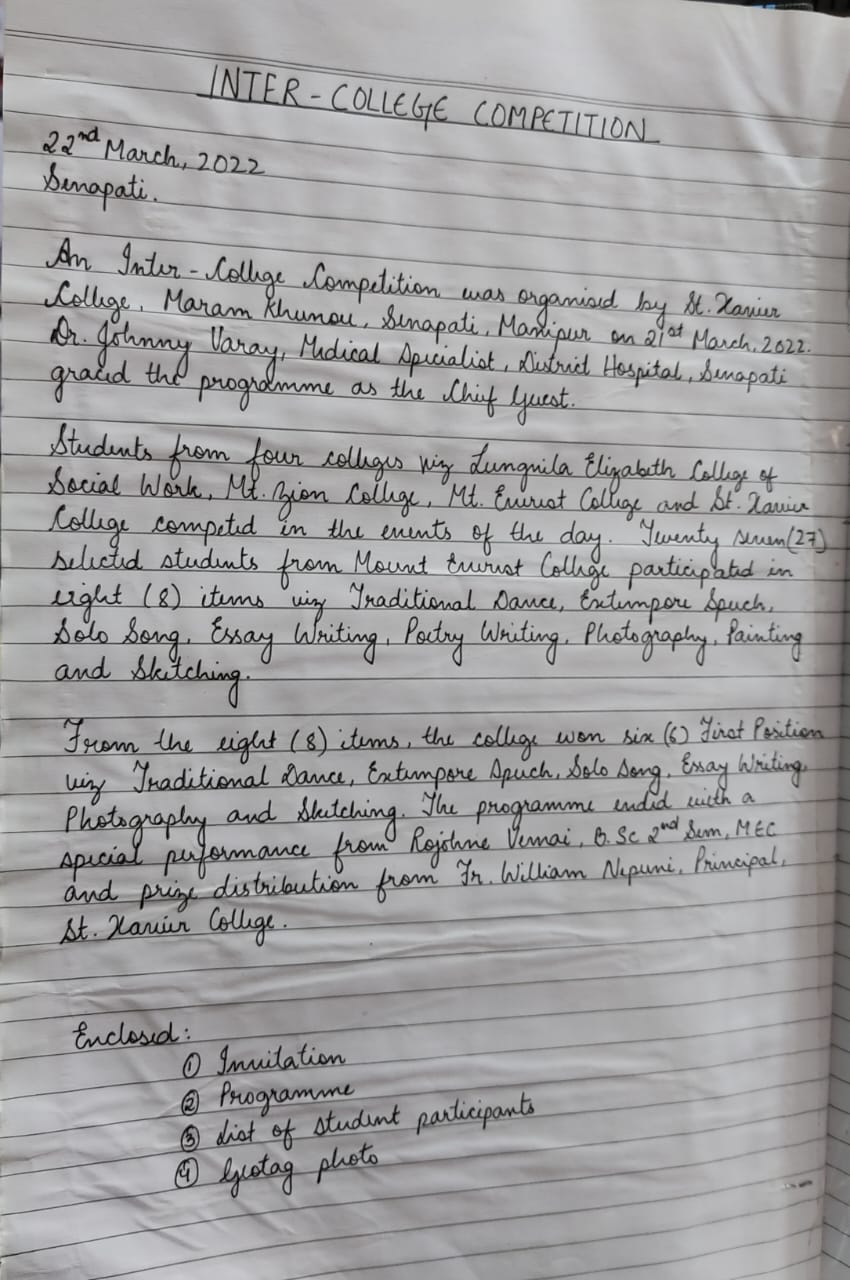 INTER-COLLEGE COMPETITION
22nd March, 2022
Senapati.
An Inter-College Competition was organised by St. Xavier
College, Maram Khunou, Senapati, Manipur on 21st March, 2022.
Dr. Johnny Varay, Medical Specialist, District Hospital, Senapati
graced the programme as the Chief Guest.
Students from four colleges viz Lungnila Elizabeth College of
Social Work, Mt. Zion College, Mt. Everest College and St. Xavier
College competed in the events of the day. Twenty seven (27)
selected students from Mount Everest College participated in
eight (8) items viz Traditional Dance, Extempore Speech,
Solo Song, Essay Writing, Poetry Writing, Photography, Painting
and Sketching.
From the eight (8) items, the college won six (6) First Position
viz Traditional Dance, Extempore Speech, Solo Song, Essay Writing,
Photography and Sketching. The programme ended with a
special performance from Rojohne Vemai, B.Sc 2nd Sem, MEC
and prize distribution from Fr. William Nepuni, Principal,
St. Xavier College.
Enclosed:
① Invitation
② Programme
③ List of student participants
④ Geotag photo